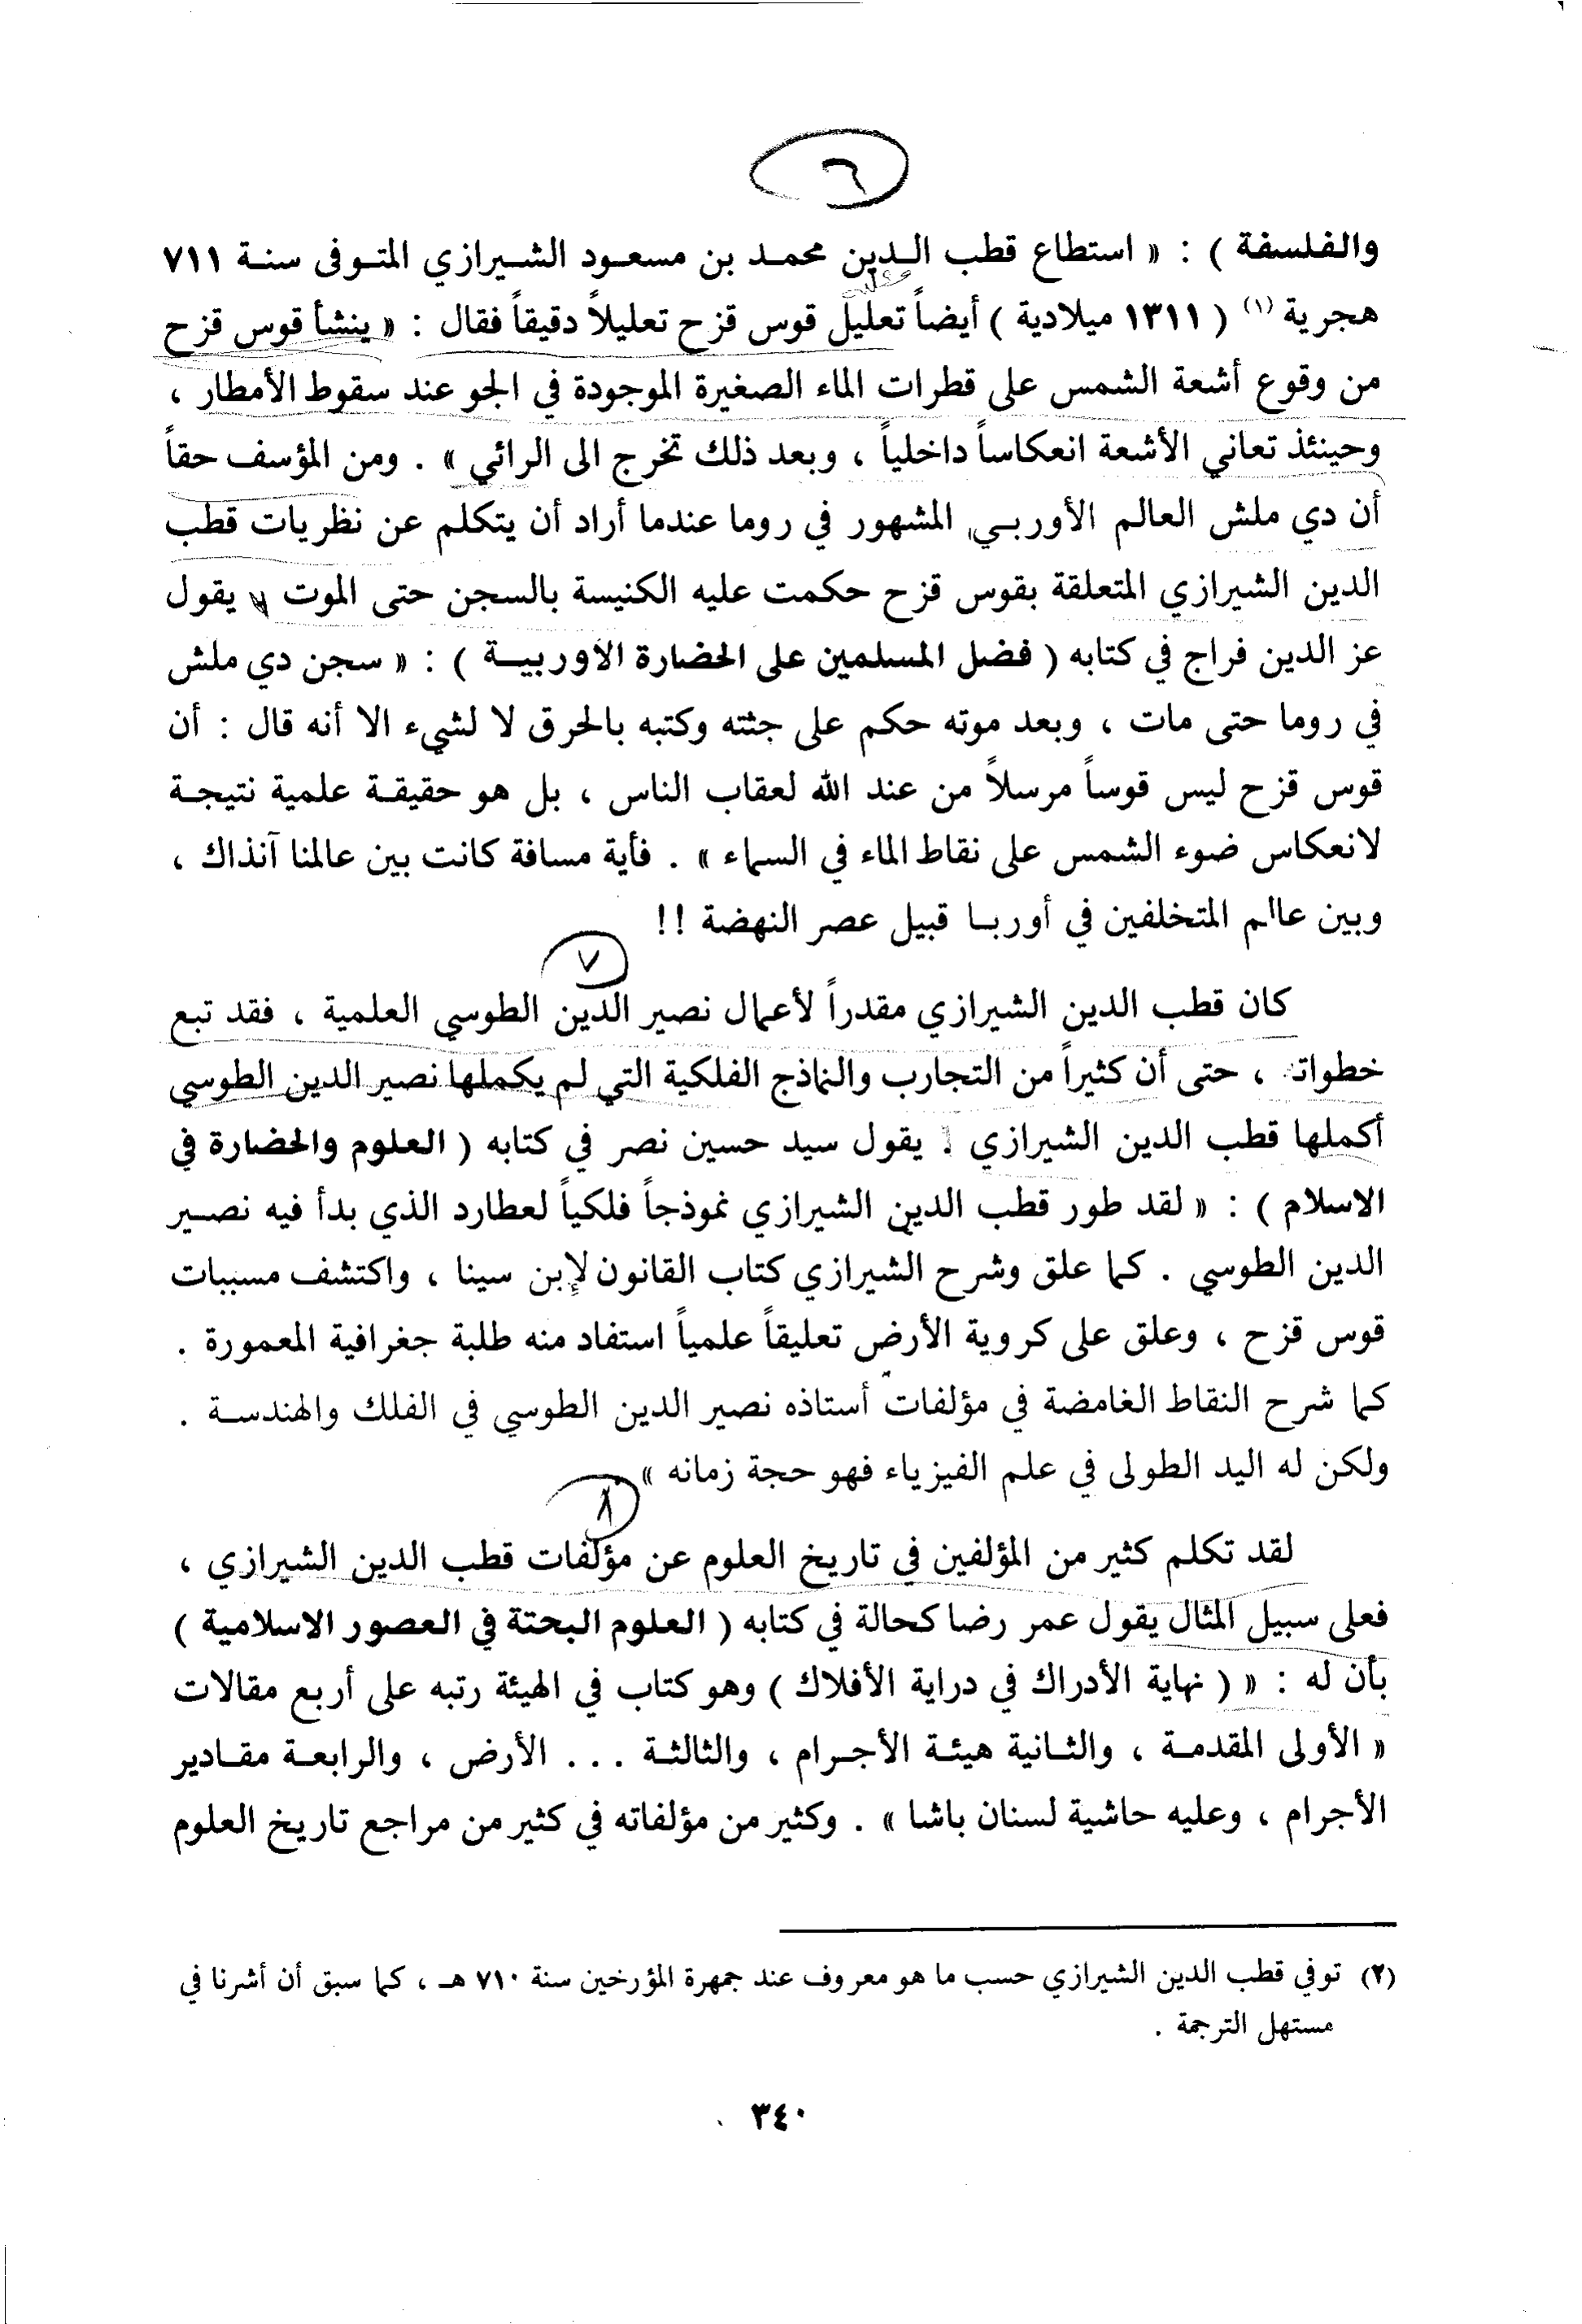 ٦
والفلسفة ) : « استطاع قطب الدين محمد بن مسعود الشيرازي المتوفى سنة ٧١١
هجرية (١) ( ١٣١١ ميلادية ) أيضاً تعليل قوس قزح تعليلاً دقيقاً فقال : « ينشأ قوس قزح
من وقوع أشعة الشمس على قطرات الماء الصغيرة الموجودة في الجو عند سقوط الأمطار ،
وحينئذ تعاني الأشعة انعكاساً داخلياً ، وبعد ذلك تخرج الى الرائي » . ومن المؤسف حقاً
أن دي ملش العالم الأوربي المشهور في روما عندما أراد أن يتكلم عن نظريات قطب
الدين الشيرازي المتعلقة بقوس قزح حكمت عليه الكنيسة بالسجن حتى الموت يقول
عز الدين فراج في كتابه ( فضل المسلمين على الحضارة الأوربية ) : « سجن دي ملش
في روما حتى مات ، وبعد موته حكم على جثته وكتبه بالحرق لا لشيء الا أنه قال : أن
قوس قزح ليس قوساً مرسلاً من عند الله لعقاب الناس ، بل هو حقيقة علمية نتيجة
لانعكاس ضوء الشمس على نقاط الماء في السماء » . فأية مسافة كانت بين عالمنا آنذاك ،
وبين عالم المتخلفين في أوربا قبيل عصر النهضة !!
٧
كان قطب الدين الشيرازي مقدراً لأعمال نصير الدين الطوسي العلمية ، فقد تبع
خطواته ، حتى أن كثيراً من التجارب والنماذج الفلكية التي لم يكملها نصير الدين الطوسي
أكملها قطب الدين الشيرازي . يقول سيد حسين نصر في كتابه ( العلوم والحضارة في
الاسلام ) : « لقد طور قطب الدين الشيرازي نموذجاً فلكياً لعطارد الذي بدأ فيه نصير
الدين الطوسي . كما علق وشرح الشيرازي كتاب القانون لإبن سينا ، واكتشف مسببات
قوس قزح ، وعلق على كروية الأرض تعليقاً علمياً استفاد منه طلبة جغرافية المعمورة .
كما شرح النقاط الغامضة في مؤلفات أستاذه نصير الدين الطوسي في الفلك والهندسة .
ولكن له اليد الطولى في علم الفيزياء فهو حجة زمانه »
٨
لقد تكلم كثير من المؤلفين في تاريخ العلوم عن مؤلفات قطب الدين الشيرازي ،
فعلى سبيل المثال يقول عمر رضا كحالة في كتابه ( العلوم البحتة في العصور الاسلامية )
بأن له : « ( نهاية الأدراك في دراية الأفلاك ) وهو كتاب في الهيئة رتبه على أربع مقالات
« الأولى المقدمة ، والثانية هيئة الأجرام ، والثالثة ... الأرض ، والرابعة مقادير
الأجرام ، وعليه حاشية لسنان باشا » . وكثير من مؤلفاته في كثير من مراجع تاريخ العلوم
(٢) توفي قطب الدين الشيرازي حسب ما هو معروف عند جمهرة المؤرخين سنة ٧١٠ هـ ، كما سبق أن أشرنا في
مستهل الترجمة .
٣٤٠